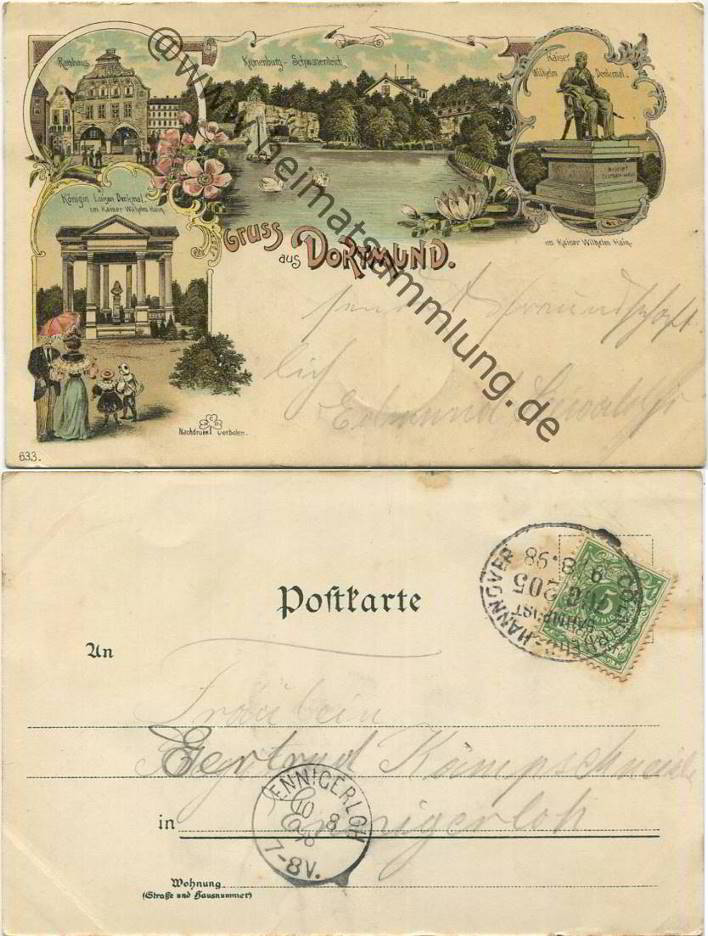 Rathaus
Kronenburg - Schwanenteich
Kaiser
Wilhelm Denkmal.
Königin Luisen Denkmal
im Kaiser Wilhelm Hain.
im Kaiser Wilhelm Hain.
Gruss aus DORTMUND.
www.heimatsammlung.de
sendet Freundschaft
lich
Edmund
Nachdruck verboten.
633.
Postkarte
An
HANNOVER
BAHNPOST
ZUG 205
9 8.98
5
Fräulein
Gertrud Kämpschneider
in Ennigerloh
ENNIGERLOH
10 8
98
7-8V.
Wohnung
(Straße und Hausnummer)